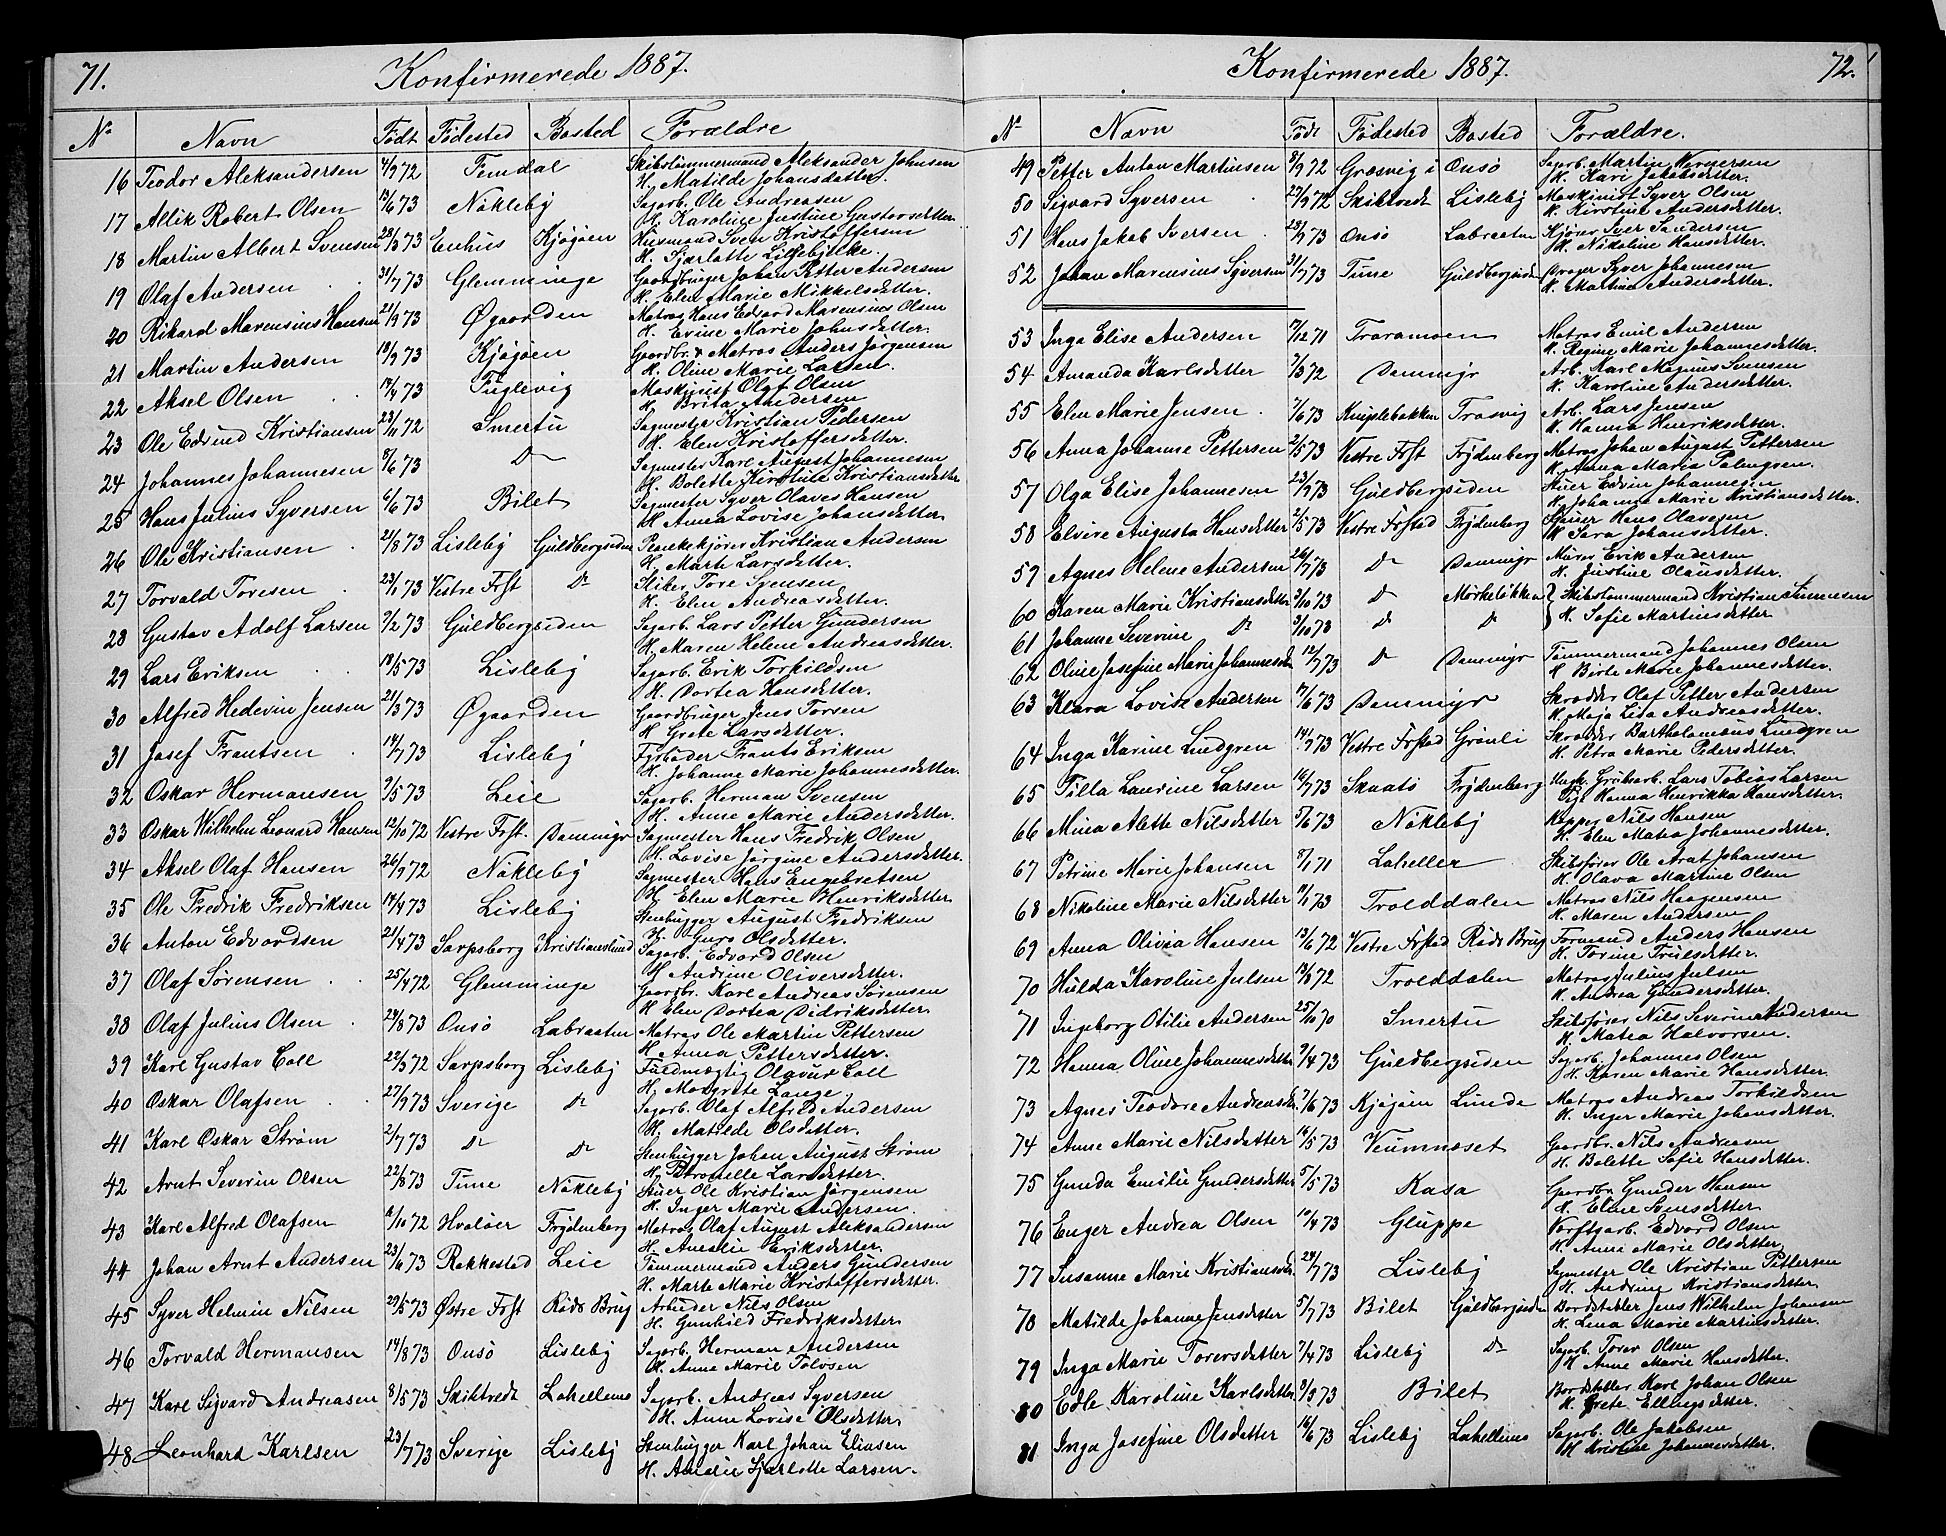 71.
Konfirmerede 1887.
No Navn Født Fødested Bosted Forældre
16 Teodor Aleksandersen 4/9 72 Femdal Skibstømmermand Aleksander Johnsen
H. Matilde Johansdatter.
17 Allik Robert Olsen 13/6 73 Nökleby Sagarb. Ole Andreasen
H. Karoline Justine Gustavsdatter.
18 Martin Albert Svensen 23/3 73 Enhus Kjøjøen Husmand Sven Kristoffersen
H. Sjarlotte
19 Olaf Andersen 31/7 73 Glemminge Gaardbruger Johan Petter Andersen
H. Elen Marie Mikkelsdatter.
20 Rikard Marensius Hansen 21/9 73 Øgaarden Matros Hans Edvard Marensius Olsen
H. Evine Marie Johnsdatter.
21 Martin Andersen 18/9 73 Kjøjøen Gaardbr. & Matros Anders Jørgensen
H. Oline Marie Larsen.
22 Aksel Olsen 14/4 73 Fuglevig Maskinist Olaf Olsen
H. Brita Andersen
23 Ole Edvind Kristiansen 23/11 72 Smertu Sagmester Kristian Pedersen
H. Elen Kristoffersdatter.
24 Johannes Johannesen 8/6 73 Do Sagmester Karl August Johannesen
H. Bolette Kirstine Kristiansdatter
25 Hans Julius Syversen 6/6 73 Bilet Sagmester Syver Olaves Hansen
H. Anna Lovise Johansdatter
26 Ole Kristiansen 21/8 73 Lisleby Guldbergsiden Kristian Andersen
H. Marte Larsdatter.
27 Torvald Toresen 23/1 73 Vestre Frst Do Stiker Tore Svensen
H. Elen Andreasdatter.
28 Gustav Adolf Larsen 9/2 73 Guldbergsiden Sagarb. Lars Petter Gundersen
H. Maren Helene Andreasdatter.
29 Lars Eriksen 18/5 73 Lisleby Sagarb. Erik Torkildsen
H. Dortea Hansdatter.
30 Alfred Hedevin Jensen 21/3 73 Øgaarden Gaardbruger Jens Torsen
H. Grete Larsdatter.
31 Josef Frantsen 14/7 73 Lisleby Fyrbøder Frants Eriksen
H. Johanne Marie Johannesdatter.
32 Oskar Hermansen 9/5 73 Leie Sagarb. Herman Svensen
H. Anne Marie Andersdatter.
33 Oskar Wilhelm Leonard Hansen 12/10 72 Vestre Frst. Dammyr Sagmester Hans Fredrik Olsen
H. Lovise Jørgine Andersdatter.
34 Aksel Olaf Hansen 26/9 72 Nökleby Sagmester Hans Engebretsen
H. Elen Marie Henriksdatter.
35 Ole Fredrik Fredriksen 14/4 73 Lisleby Stenhugger August Fredriksen
H. Guro Olsdatter.
36 Anton Edvardsen 21/4 73 Sarpsborg Kristianslund Sagarb. Edvard Olsen
H. Andrine Oliversdatter.
37 Olaf Sørensen 25/4 72 Glemminge Gaardbr. Karl Andreas Sørensen
H. Elen Dortea Didriksdatter
38 Olaf Julius Olsen 29/8 73 Onsö Labraaten Matros Ole Martin Pettersen
H. Anna Pettersdatter.
39 Karl Gustav Coll 22/3 72 Sarpsborg Lisleby Færdmægtig Olavur Coll
H. Margrete Lange
40 Oskar Olafsen 27/9 73 Sverige Do Sagarb. Olaf Alfred Andersen
H. Matilde Olsdatter.
41 Karl Oskar Strøm 2/7 73 Do Do Stenhugger Johan August Strøm
H. Petronelle Larsdatter.
42 Arnt Severin Olsen 22/8 73 Tune Nökleby Stuer Ole Kristian Jørgensen
H. Inger Marie Andersen.
43 Karl Alfred Olafsen 6/10 72 Hvaløer Frydenberg Matros Olaf August Aleksandersen
H. Amalie Eriksdatter.
44 Johan Arnt Andersen 23/6 73 Rakkestad Leie Tömmermand Anders Gundersen
H. Marte Marie Kristoffersdatter.
45 Syver Helmin Nilsen 29/5 73 Østre Frst Röds Brug Arbeider Nils Olsen
H. Gunhild Fredriksdatter
46 Torvald Hermansen 14/8 73 Onsö Lisleby Sagarb. Herman Andersen
H. Anna Marie Tolvsen
47 Karl Sigvard Andreasen 8/5 73 Skiktvedt Lahellene Sagarb. Andreas Syversen
H. Anne Lovise Olsdatter.
48 Leonhard Karlsen 23/7 73 Sverige Lisleby Stenhugger Karl Johan Eliasen
H. Amalie Sjarlotte Larsen.
Konfirmerede 1887.
72.
No Navn Född Fødested Bosted Forældre.
49 Petter Anton Martinsen 8/9 72 Græsvig i Onsö Sagarb. Martin
H. Kari Jakobsdatter.
50 Sigvard Syversen 27/9 72 Skiktvedt Lisleby Maskinist Syver Olsen
H. Kirstine Andersdatter.
51 Hans Jakob Iversen 23/9 73 Onsö Labraaten Kjører Iver Sandersen
H. Nikoline Hansdatter.
52 Johan Marensius Syversen 31/7 73 Tune Guldbergsiden Drager Syver Johannesen
H. Martine Andersdatter.
53 Inga Elise Andersen 7/12 71 Traramoen Matros Emil Andersen
H. Regine Marie Johannesdatter.
54 Amanda Karlsdatter 7/3 72 Dammyr Arb. Karl Magnus Svensen
H. Karoline Andersdatter.
55 Elen Marie Jensen 7/6 73 Kniplebakken Trosvig Arb. Lars Jensen
H. Hanna Henriksdatter.
56 Anna Johanne Pettersen 2/5 73 Vestre Frst Frydenberg Matros Johan August Pettersen
H. Anna Maria Palmgren.
57 Olga Elise Johannesen 23/9 73 Guldbergsiden Stuer Edvin Johannesen
H. Johanne Marie Kristiansdatter.
58 Elvire Augusta Hansdatter 2/5 73 Vestre Frstad Frydenberg Stuer Hans Olavesen
H. Sara Johansdatter.
59 Agnes Helene Andersen 26/7 73 Do Dammyr Murer Erik Andersen
H. Justine Olausdatter.
60 Karen Marie Kristiansdatter 3/10 73 Do Mörkelökka Skibstømmermand Kristian
61 Johanne Severine Do 3/10 73 Do Do H. Sofie Martinsdatter
62 Oline Josefine Marie Johannesdtr 12/7 73 Do Dammyr Tömmermand Johannes Olsen
H. Birte Marie Johannesdatter.
63 Klara Lovise Andersen 17/6 73 Dammyr Skrædder Olaf Petter Andersen
H. Maja Lisa Andreasdatter.
64 Inga Karine Lindgren 14/9 73 Vestre Frstad Grönli Skrædder Bartholomæus Lindgren
H. Petra Marie Pedersdatter.
65 Tilla Laurine Larsen 16/7 73 Skaatö Frydenberg Ungk. Grubearb. Lars Tobias Larsen
Pige Hanna Henrikka Hansdatter.
66 Mina Alette Nilsdatter 5/6 73 Nökleby Nils Hansen
H. Elen Matea Johannesdatter.
67 Petrine Marie Johansen 8/1 71 Laheller Skibsfører Ole Arnt Johansen
H. Olava Martine Olsen
68 Nikoline Marie Nilsdatter 11/1 73 Trolddalen Matros Nils Haagensen
H. Maren Andersen
69 Anna Olivia Hansen 13/6 72 Vestre Frstad Röds Brug Formand Anders Hansen
H. Torine Truilsdetter.
70 Hulda Karoline Julsen 13/8 72 Trolddalen Matros Julius Julsen
H. Andrea Gundersdatter.
71 Ingeborg Otilie Andersen 25/10 70 Smertu Skibsfører Nils Severin Andersen
H. Matea Halvorsen.
72 Hanna Oline Johannesdatter 9/4 73 Guldbergsiden Sagarb. Johannes Olsen
H. Karen Marie Hansdatter.
73 Agnes Teodore Andreasdtr. 7/6 73 Kjøjøen Lunde Matros Andreas Torkildsen
H. Inger Marie Johansdatter.
74 Anne Marie Nilsdatter 16/5 73 Veumnæset Gaardbr. Nils Andreasen
H. Bolette Sofie Hansdatter.
75 Gunda Emilie Gundersdatter 5/5 73 Kasa Gaardbr. Gunder Hansen
H. Eline Svensdatter.
76 Enger Andrea Olsen 10/4 73 Gluppe Værftsarb. Edvard Olsen
H. Anne Marie Olsdatter
77 Susanne Marie Kristiansdtr. 29/7 73 Lisleby Sagmester Ole Kristian Pettersen
H. Andrine Kristiansdatter.
78 Matilde Johanne Jensdatter 5/7 73 Bilet Guldbergsiden Bordstabler Jens Wilhelm Johansen
H. Lina Marie Martinsdatter.
79 Inga Marie Torersdatter 7/4 73 Lisleby Do Sagarb. Torer Olsen
H. Anne Marie Hansdatter.
80 Edle Karoline Karlsdatter 3/3 73 Bilet Bordstabler Karl Johan Olsen
H. Grete Ellingsdatter.
81 Inga Josefine Olsdatter 16/6 73 Lisleby Lahellene Sagarb. Ole Jakobsen
H. Kristine Johannesdatter.